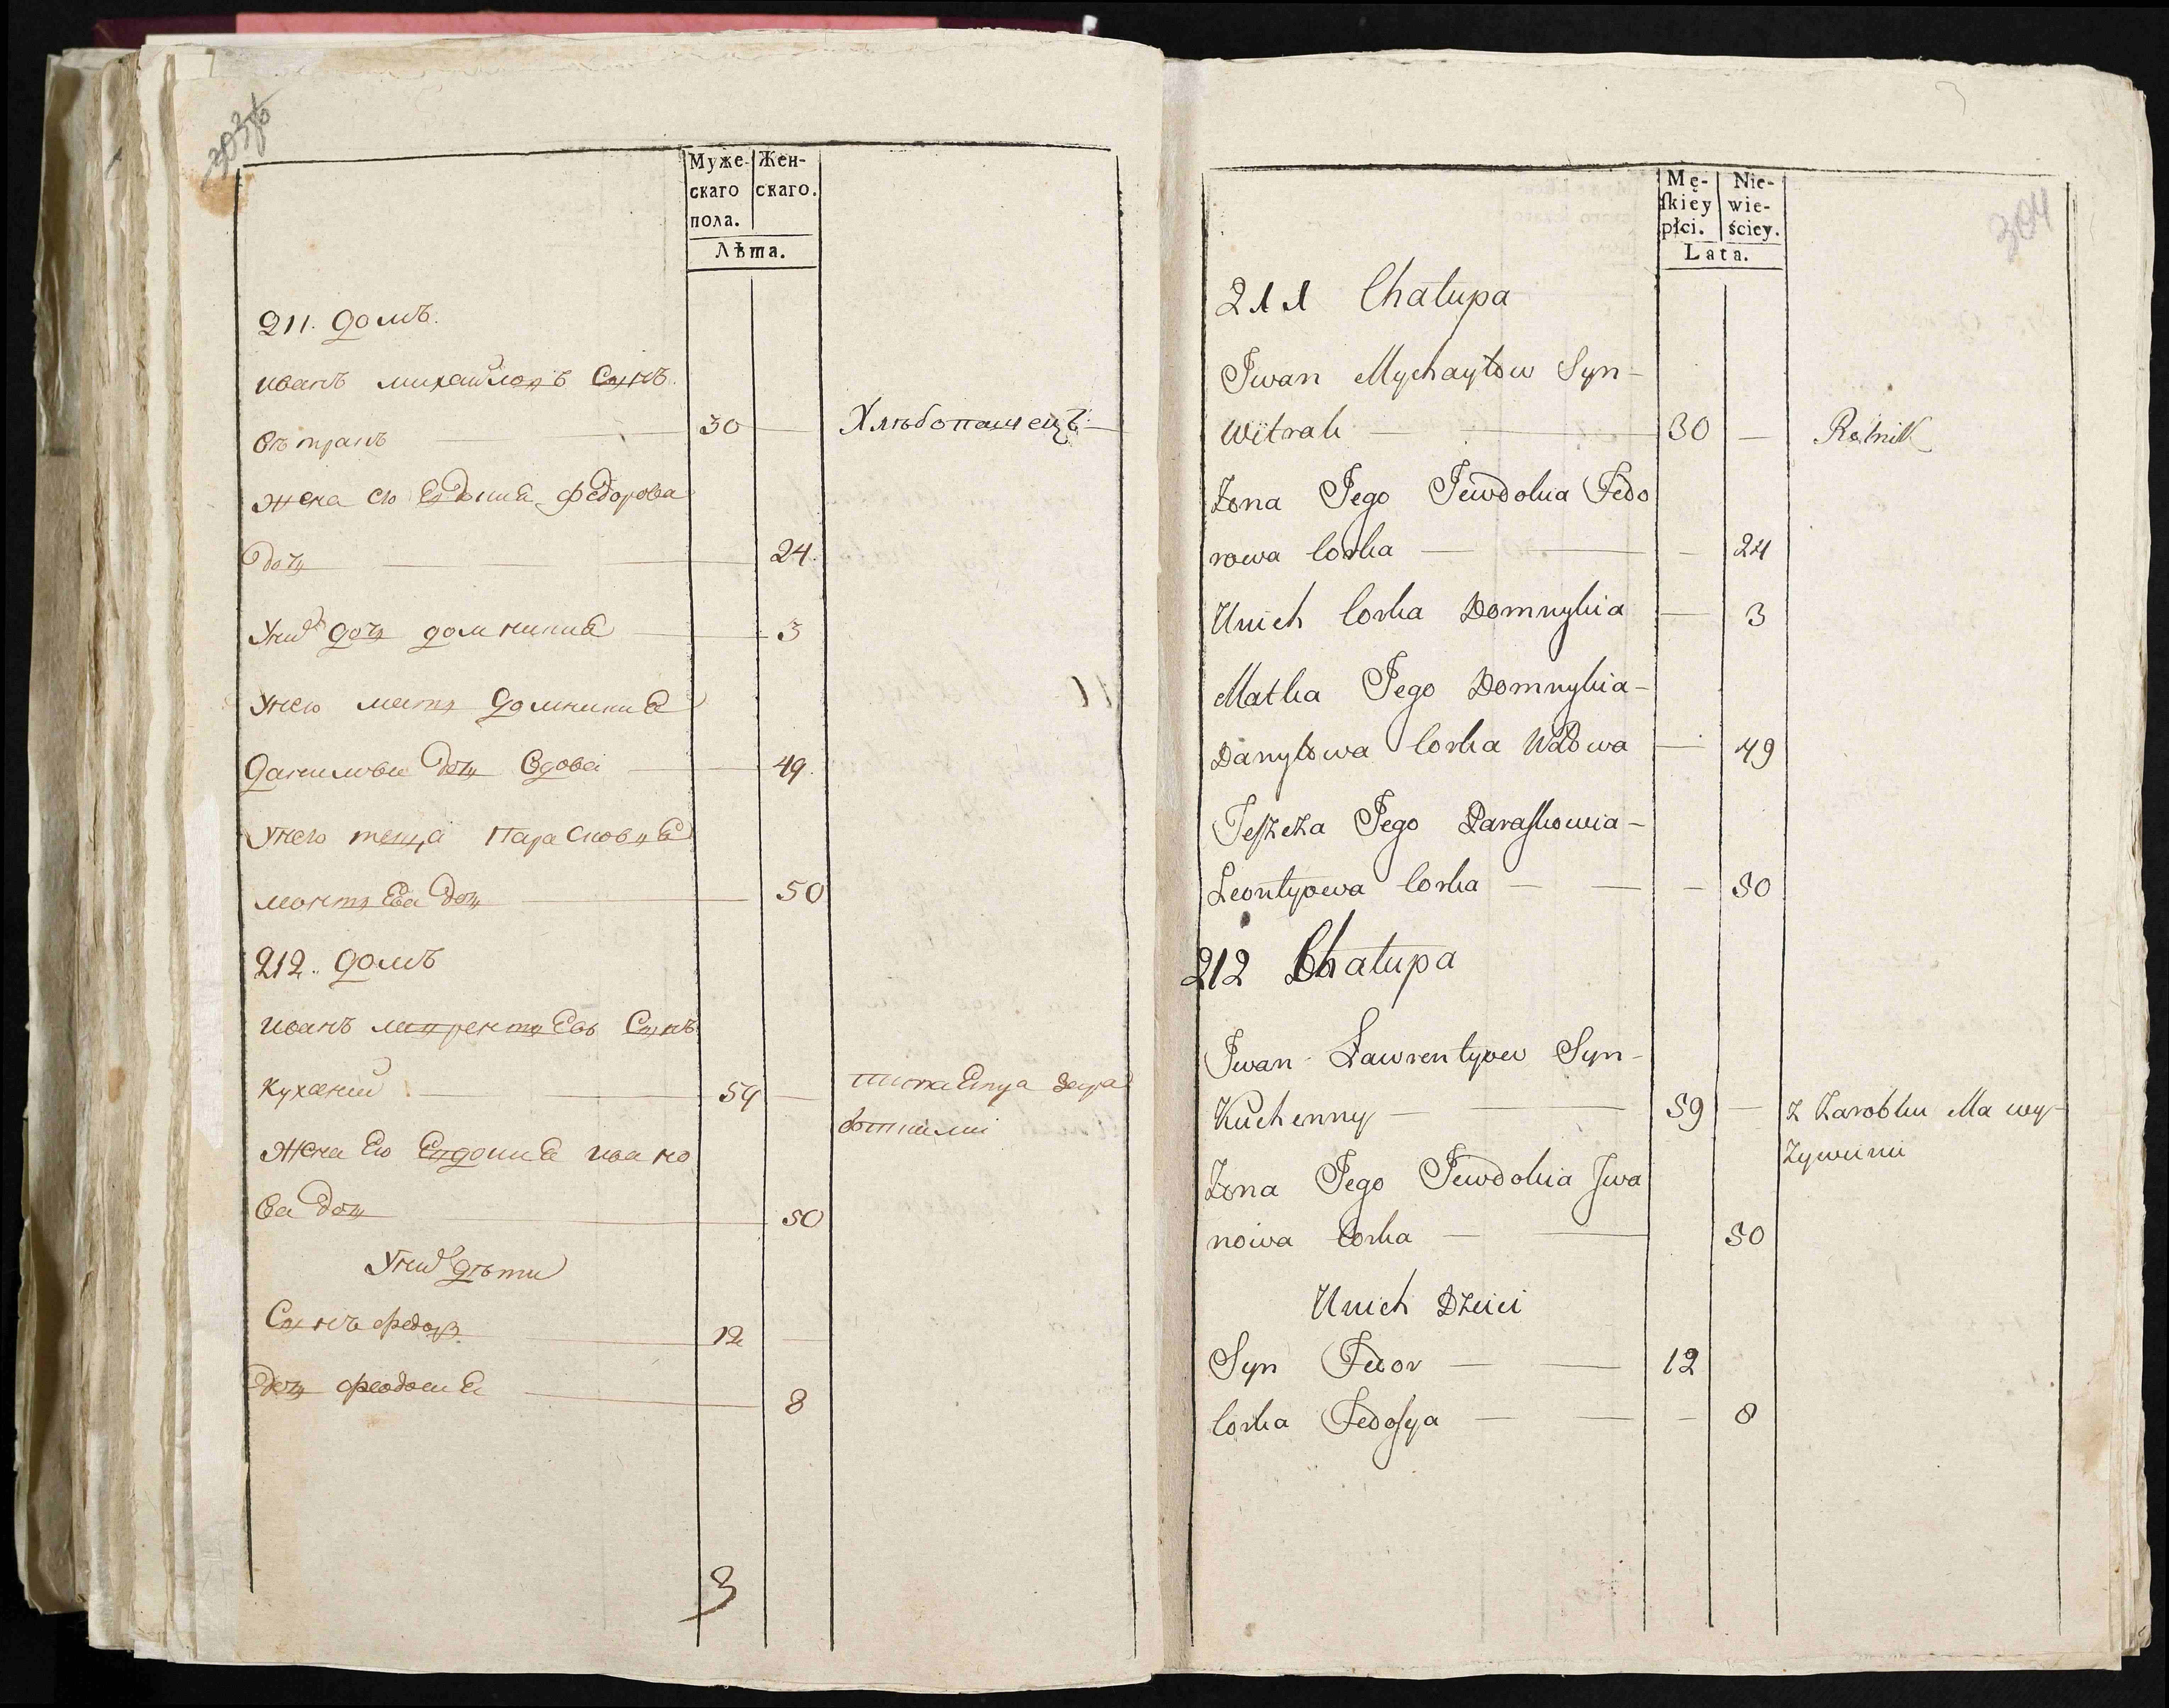 303об
Муже-
скаго
пола.
Жен-
скаго.
Лѣта.
211. Домъ.
Иванъ Михайловъ Сынъ
Вѣтракъ 30 — Хлѣбопашецъ
Жена Его Евдокия Федорова
Дочь 24.
Уних Дочь Домникиа 3
Унего мать Домникиа
Данилова Дочь Вдова 49.
Унего теща Парасковиа
Леонтьева Дочь 50
212. Домъ
Иванъ Лаврентьевъ Сынъ
Куханни 59 —
Жена Его Евдокиа Ивано
ва Дочь 50
Уних Дѣти
Сынъ Федоръ 12 —
Дочь Феодосиа 8
3
304
Mę-
skiey
płci.
Nie-
wie-
ściey.
Lata.
211 Chałupa
Jwan Mychayłow Syn —
Witrak — 30 — Rolnik
Zona Jego Jewdokia Fedo
rowa Corka — — 24
Unich Corka Domnykia — 3
Matka Jego Domnykia —
Danyłowa Corka Wdowa — 49
Teszcza Jego Paraskowia —
Leontyowa Corka — — — 50
212 Chałupa
Jwan Ławrentyow Syn —
Kuchenny — — 59 — Z Zarobku Ma wy-
Zywieini
Zona Jego Jewdokia Jwa
nowa Corka — — 50
Unich Dzieci
Syn Fedor — — 12
Corka Fedosya — — — 8